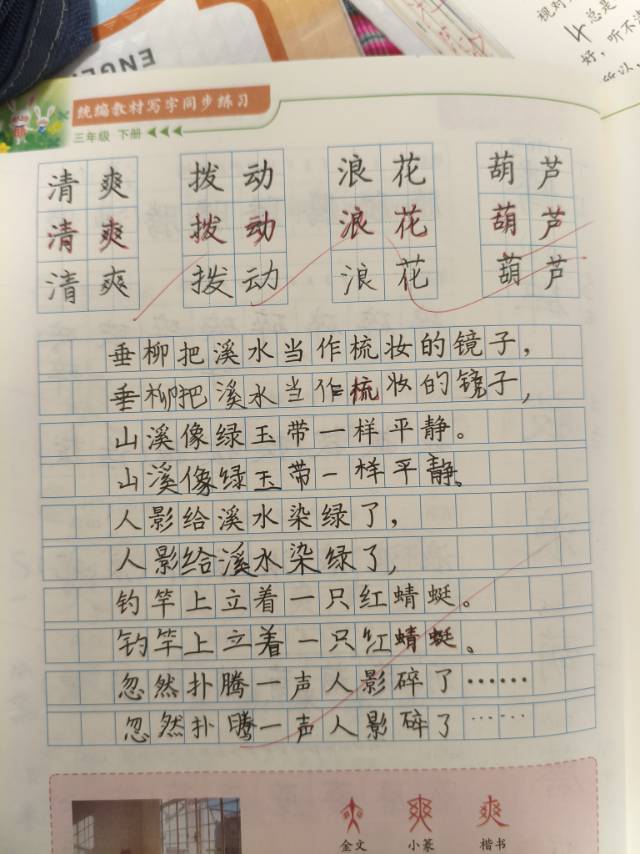 ENGL
视对
总是
好，听不
所以，
统编教材写字同步练习
三年级 下册
清爽 拨动 浪花 葫芦
清爽 拨动 浪花 葫芦
清爽 拨动 浪花 葫芦
垂柳把溪水当作梳妆的镜子，
垂柳把溪水当作梳妆的镜子，
山溪像绿玉带一样平静。
山溪像绿玉带一样平静。
人影给溪水染绿了，
人影给溪水染绿了，
钓竿上立着一只红蜻蜓。
钓竿上立着一只红蜻蜓。
忽然扑腾一声人影碎了……
忽然扑腾一声人影碎了……
金文 小篆 楷书